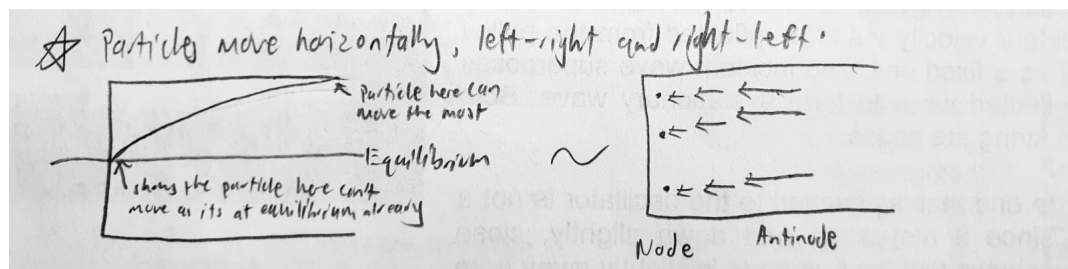 ☆ Particles move horizontally, left-right and right left.
Particle here can
move the most
Equilibrium
shows the particle here can't
move as its at equilibrium already
~
Node
Antinode